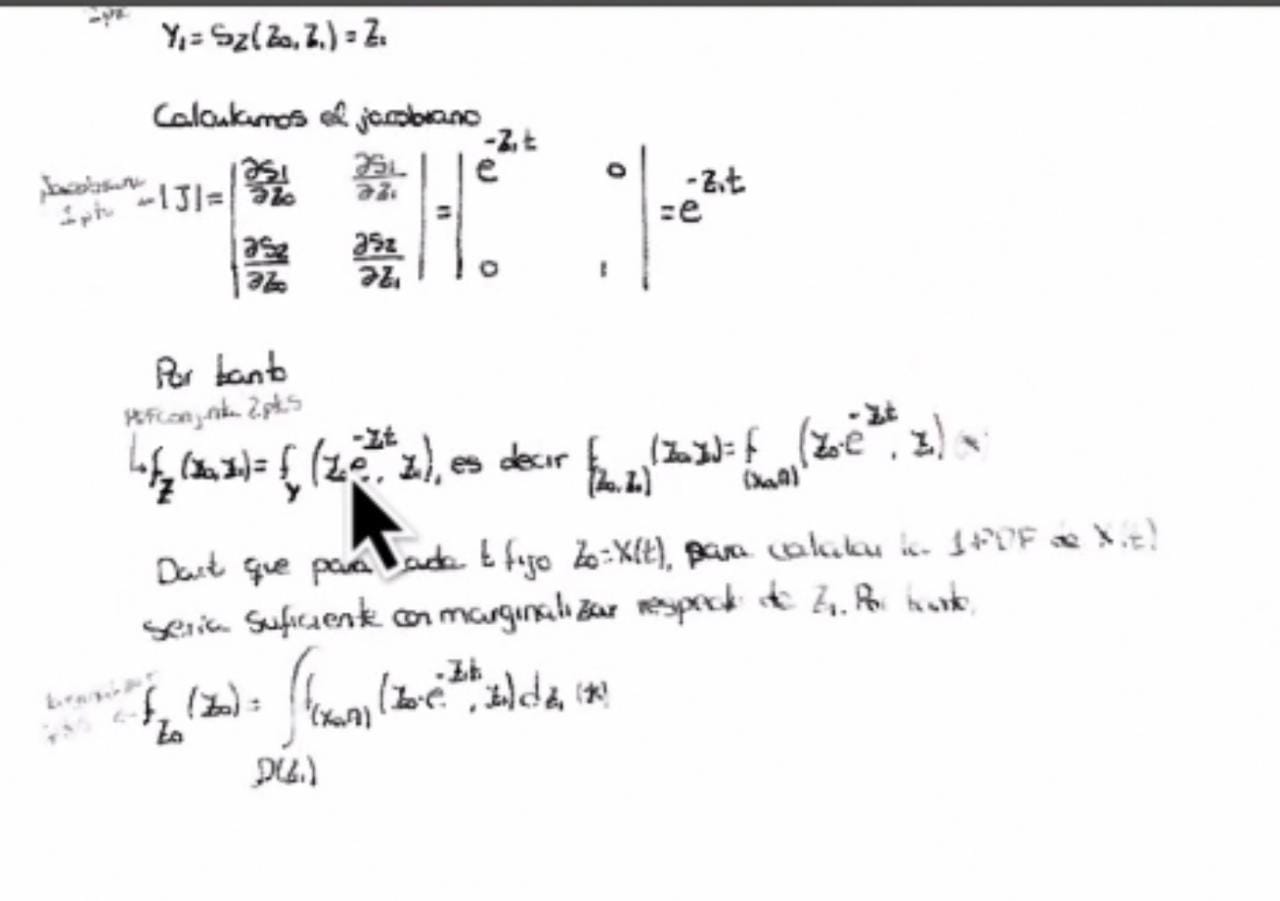 Y₁ = S₂(Z₀, Z₁) = Z₁
Calculamos el jacobiano
Jacobiano
1 pto
|J| = | ∂S₁/∂Z₀ ∂S₁/∂Z₁ ; ∂S₂/∂Z₀ ∂S₂/∂Z₁ | = | e^{-Z₁t} 0 ; 0 1 | = e^{-Z₁t}
Por tanto
PDF conjunta 2 pts
↳ f_Z (z₀, z₁) = f_Y (z₀ e^{-z₁t}, z₁), es decir f_{(Z₀, Z₁)} (z₀, z₁) = f_{(X₀, A)} (z₀ · e^{-z₁t}, z₁) (*)
que para cada t fijo Z₀ = X(t), para calcular la 1-PDF de X(t)
sería suficiente con marginalizar respecto de Z₁. Por tanto,
f_{Z₀} (z₀) = ∫_{D(Z₁)} f_{(X₀, A)} (z₀ · e^{-z₁t}, z₁) dz₁ (*)